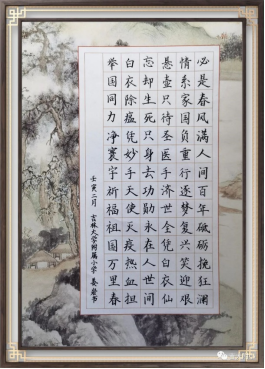 必是春风满人间百年砥砺挽狂澜
情系家国负重行逐梦复兴笑迎艰
悬壶只待圣医手济世全凭白衣仙
忘却生死只身去功勋永在人世间
白衣除瘟凭妙手天使灭疫热血担
举国同力净寰宇祈福祖国万里春
壬寅二月 吉林大学附属小学 书